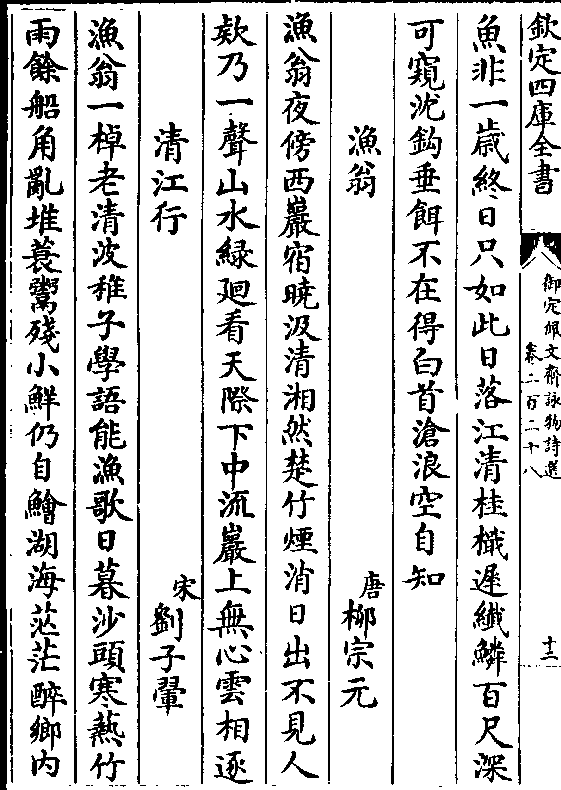 欽定四庫全書
御定佩文齋詠物詩選
卷二百二十八
十三
魚非一歲終日只如此日落江清桂檝遲纖鱗百尺深
可窺沈鈎垂餌不在得白首滄浪空自知
漁翁
唐柳宗元
漁翁夜傍西巖宿曉汲清湘然楚竹煙消日出不見人
欸乃一聲山水緑廻看天際下中流巖上無心雲相逐
清江行
宋劉子翬
漁翁一棹老清波稚子學語能漁歌日暮沙頭寒爇竹
雨餘船角亂堆蓑鬻殘小鮮仍自鱠湖海茫茫醉鄉内